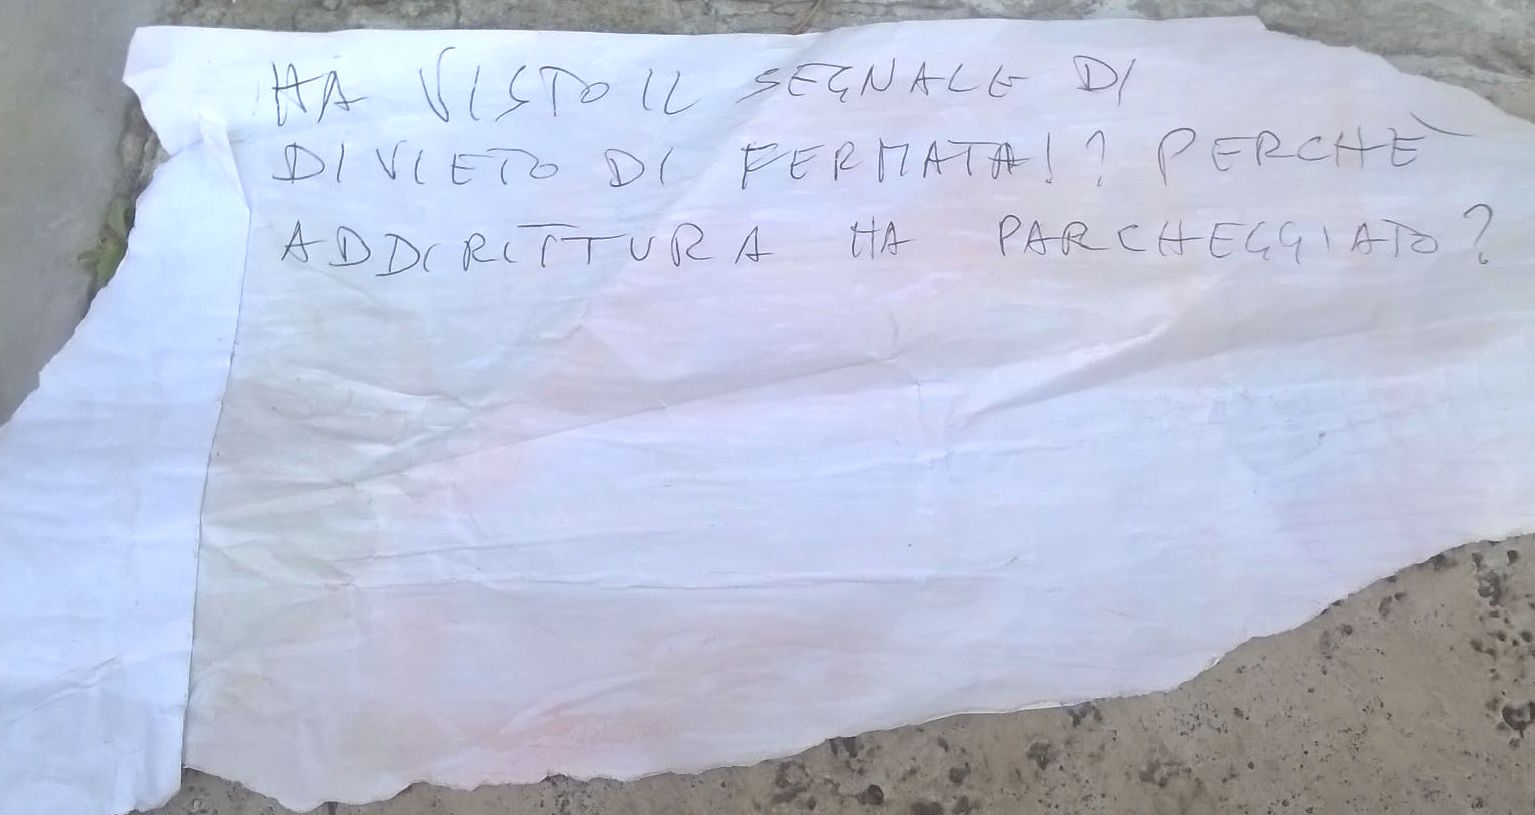 HA VISTO IL SEGNALE DI
DIVIETO DI FERMATA!? PERCHÈ
ADDIRITTURA HA PARCHEGGIATO?